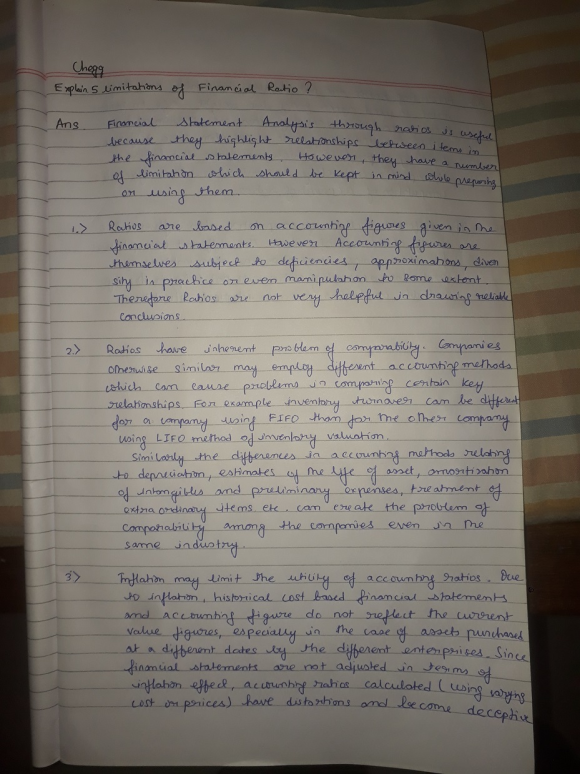 Chegg
Explain 5 limitations of Financial Ratio ?
Ans Financial statement Analysis through ratios is useful
because they highlight relationships between items in
the financial statements. However, they have a number
of limitation which should be kept in mind while preparing
or using them.
1.> Ratios are based on accounting figures given in the
financial statements. However Accounting figures are
themselves subject to deficiencies, approximations, diver
sity in practice or even manipulation to some extent.
Therefore Ratios are not very helpful in drawing reliable
conclusions.
2.> Ratios have inherent problem of comparability. Companies
otherwise similar may employ different accounting methods
which can cause problems in comparing certain key
relationships. For example inventory turnover can be different
for a company using FIFO than for the other company
using LIFO method of inventory valuation.
Similarly the differences in accounting methods relating
to depreciation, estimates of the life of asset, amortization
of intangibles and preliminary expenses, treatment of
extraordinary items etc. can create the problem of
comparability among the companies even in the
same industry.
3> Inflation may limit the utility of accounting ratios. Due
to inflation, historical cost based financial statements
and accounting figure do not reflect the current
value figures, especially in the case of assets purchased
at a different dates by the different enterprises. Since
financial statements are not adjusted in terms of
inflation effect, accounting ratios calculated (using varying
cost or prices) have distortions and become deceptive